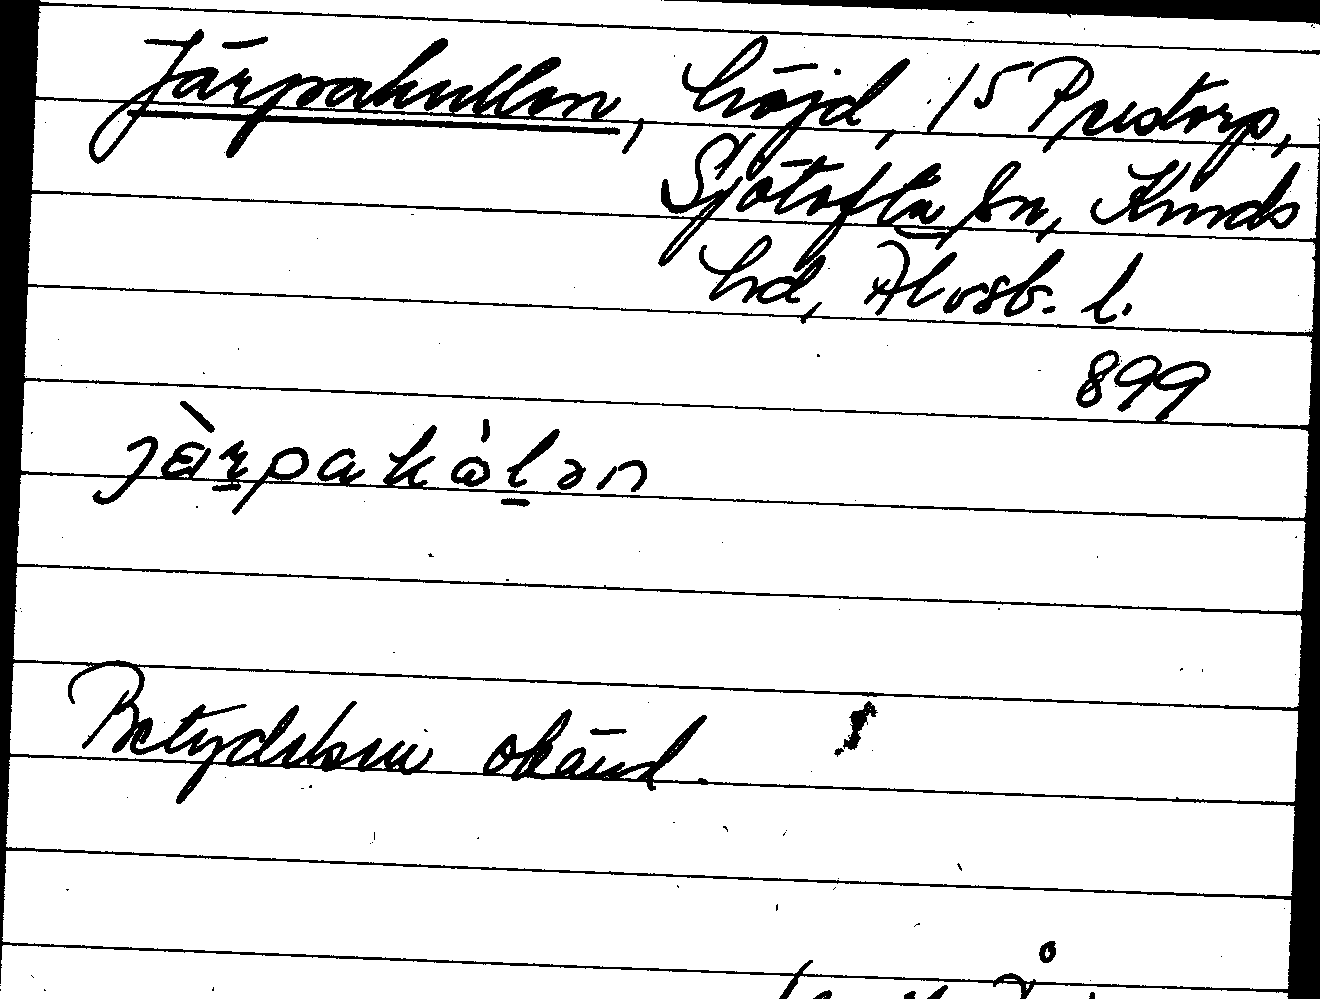 Järpakullen, höjd, 15 Prestorp,
Sjötofta sn, Kinds
hd, Älvsb. l.
899
jèrpakòlən
Betydelsen okänd.